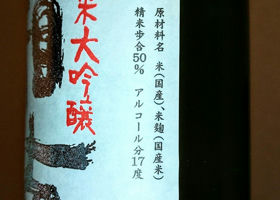 原材料名 米(国産)、米麹(国産米)
精米歩合50% アルコール分17度
米大吟醸